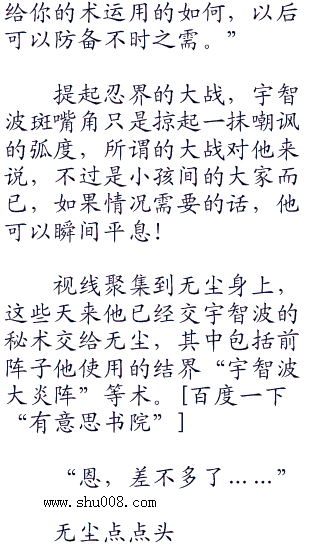 给你的术运用的如何，以后
可以防备不时之需。”
提起忍界的大战，宇智
波斑嘴角只是掠起一抹嘲讽
的弧度，所谓的大战对他来
说，不过是小孩间的大家而
已，如果情况需要的话，他
可以瞬间平息!
视线聚集到无尘身上，
这些天来他已经交宇智波的
秘术交给无尘，其中包括前
阵子他使用的结界“宇智波
大炎阵”等术。[百度一下
“有意思书院”]
“恩，差不多了……”
www.shu008.com
无尘点点头